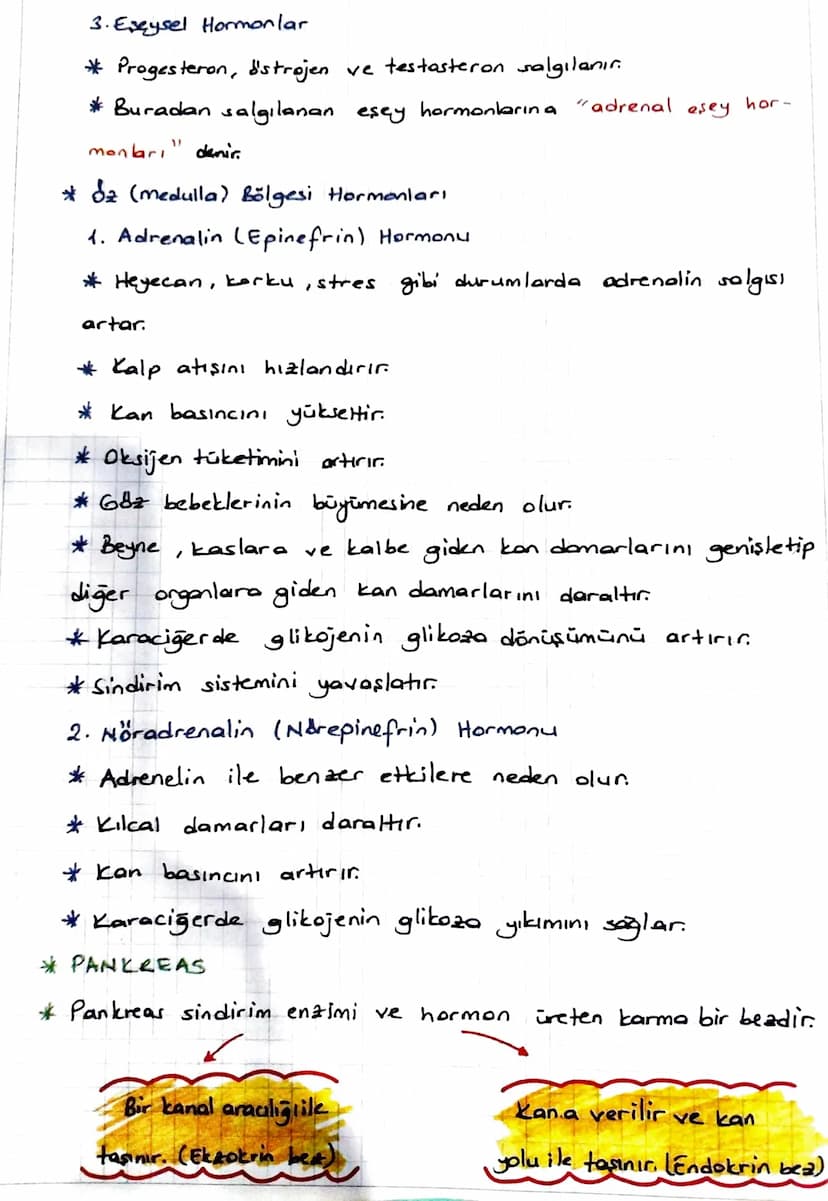 3. Eşeysel Hormonlar
* Progesteron, östrojen ve testasteron salgılanır.
* Buradan salgılanan eşey hormonlarına "adrenal eşey hor-
monları" denir.
* Öz (medulla) Bölgesi Hormonları
1. Adrenalin (Epinefrin) Hormonu
* Heyecan, korku, stres gibi durumlarda adrenalin salgısı
artar.
* Kalp atışını hızlandırır.
* Kan basıncını yükseltir.
* Oksijen tüketimini artırır.
* Göz bebeklerinin büyümesine neden olur.
* Beyne, kaslara ve kalbe giden kan damarlarını genişletip
diğer organlara giden kan damarlarını daraltır.
* Karaciğerde glikojenin glikoza dönüşümünü artırır.
* Sindirim sistemini yavaşlatır.
2. Nöradrenalin (Nörepinefrin) Hormonu
* Adrenelin ile benzer etkilere neden olur.
* Kılcal damarları daraltır.
* Kan basıncını artırır.
* Karaciğerde glikojenin glikoza yıkımını sağlar.
* PANKREAS
* Pankreas sindirim enzimi ve hormon üreten karma bir bezdir.
Bir kanal aracılığı ile
taşınır. (Ekzokrin bez)
Kana verilir ve kan
yolu ile taşınır. (Endokrin bez)